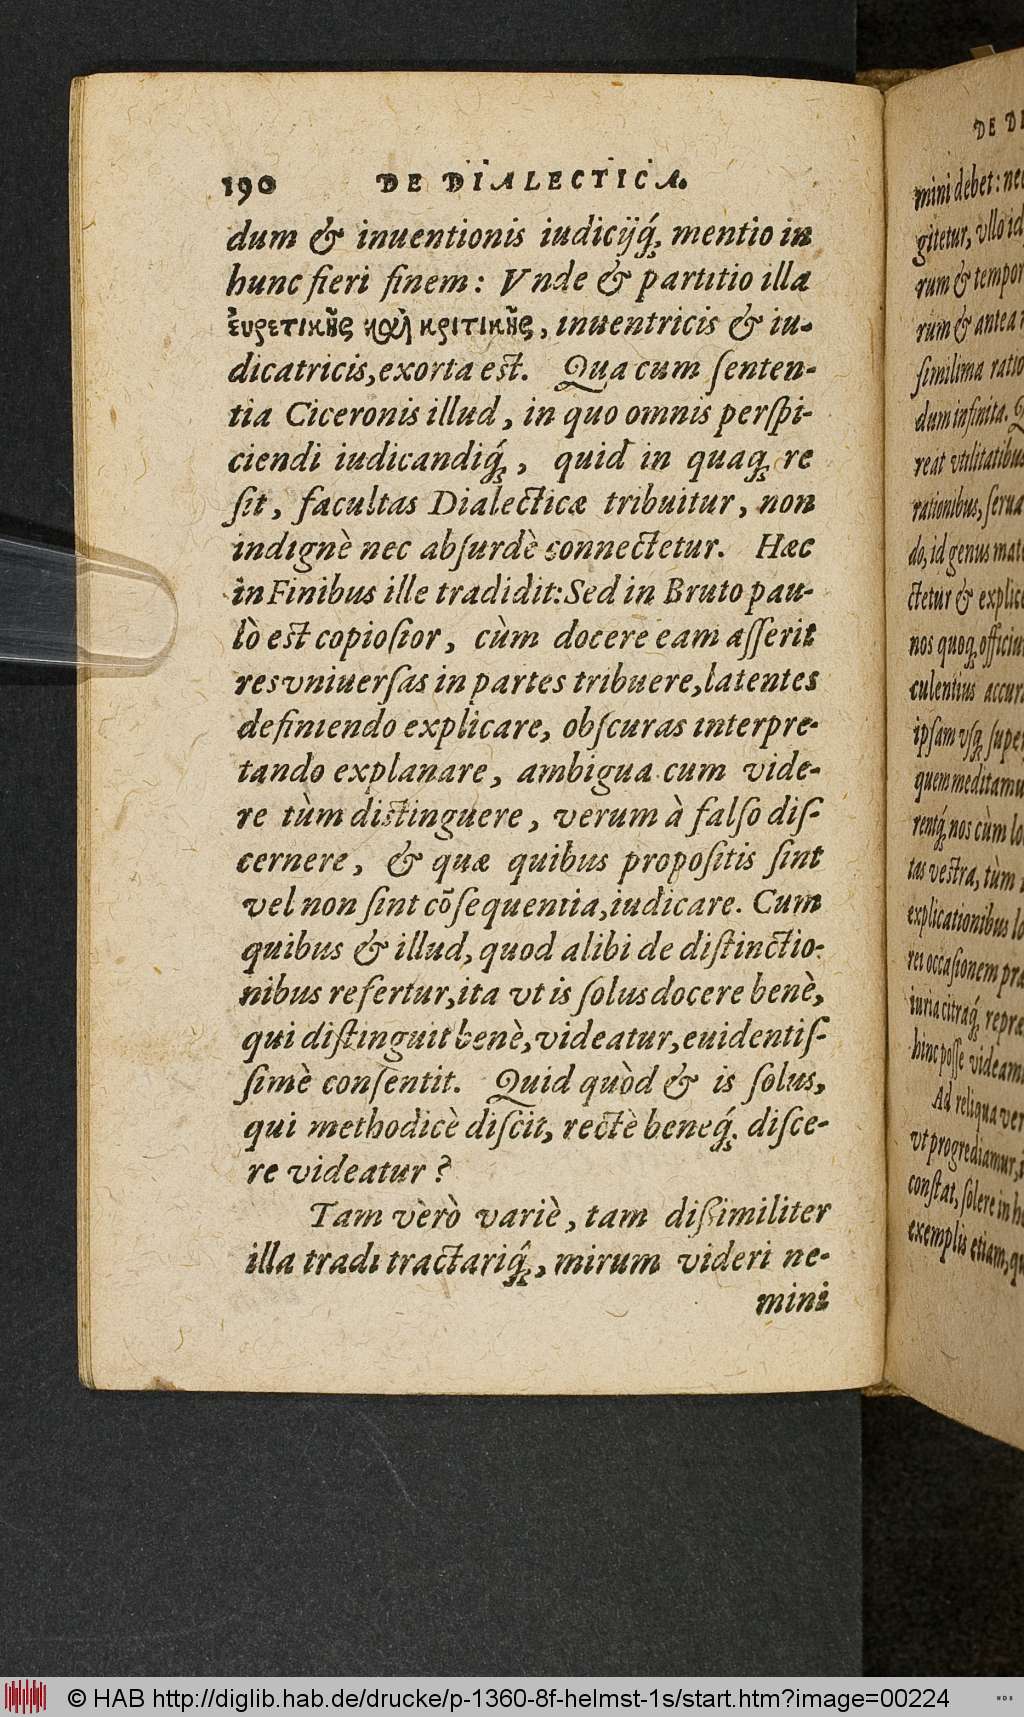 190 DE DIALECTICA.
dum & inuentionis iudicijq́;, mentio in
hunc fieri finem: Vnde & partitio illa
ἑυρετικῆς καὶ κριτικῆς, inuentricis & iu-
dicatricis, exorta est. Qua cum senten-
tia Ciceronis illud, in quo omnis perspi-
ciendi iudicandiq́;, quid in quaq; re
sit, facultas Dialecticæ tribuitur, non
indignè nec absurdè connectetur. Hæc
in Finibus ille tradidit: Sed in Bruto pau-
lò est copiosior, cùm docere eam asserit
res vniuersas in partes tribuere, latentes
definiendo explicare, obscuras interpre-
tando explanare, ambigua cum vide-
re tùm distinguere, verum à falso dis-
cernere, & quæ quibus propositis sint
vel non sint cōsequentia, iudicare. Cum
quibus & illud, quod alibi de distinctio-
nibus refertur, ita vt is solus docere benè,
qui distinguit benè, videatur, euidentis-
simè consentit. Quid quòd & is solus,
qui methodicè discit, rectè beneq́;. disce-
re videatur?
Tam vèrò variè, tam dissimiliter
illa tradi tractariq́;, mirum videri ne-
mini
DE
mini debet: nec
gitetur, vllo id
rum & tempor
rum & antea
simil ima ratio
dum infinita.
reat vtilitatibus
rationibus, serua
do, id genus mat
ctetur & explic
nos quoq; officiu
culentius accur
ipsam vsq; super
quem meditamu
rentq́; nos cùm lo
tas vestra, tùm
explicationibus lo
rei occasionem præ
iuria citraq́; repræ
hinc posse videam
Ad reliqua ver
vt progrediamur,
constat, solere in h
exemplis etiam, qu
© HAB http://diglib.hab.de/drucke/p-1360-8f-helmst-1s/start.htm?image=00224